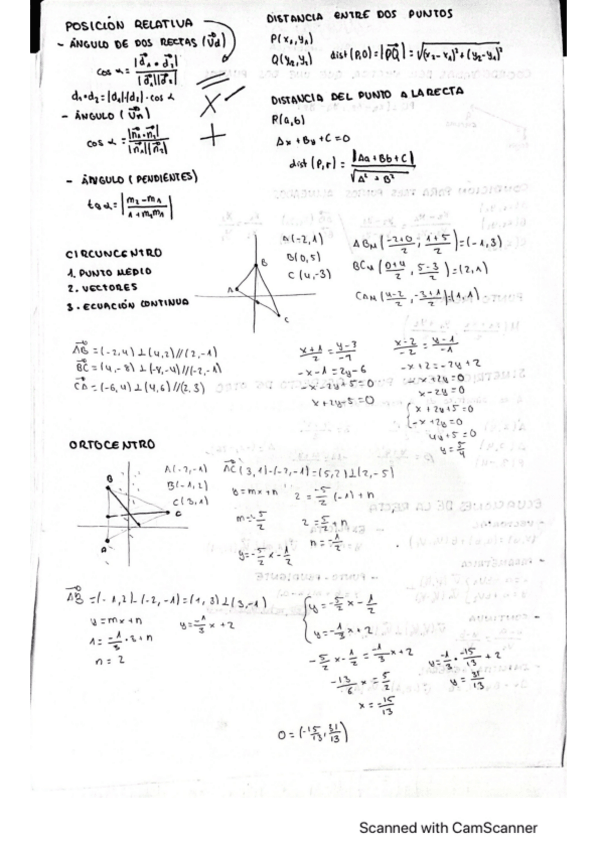 POSICIÓN RELATIVA
- ÁNGULO DE DOS RECTAS (Vd)
cos α = |d₁ • d₂| / |d₁||d₂|
d₁•d₂ = |d₁|·|d₂| · cos α
- ÁNGULO (Vn)
cos α = |n₁ • n₂| / |n₁||n₂|
- ÁNGULO (PENDIENTES)
tg α = |m₂ - m₁ / 1 + m₂m₁|
DISTANCIA ENTRE DOS PUNTOS
P(x₁, y₁)
dist (P,Q) = |PQ| = √(x₂ - x₁)² + (y₂ - y₁)²
DISTANCIA DEL PUNTO A LA RECTA
P(a,b)
Ax + By + C = 0
dist (P,r) = |Aa + Bb + C| / √A² + B²
CIRCUNCENTRO
1. PUNTO MEDIO
2. VECTORES
3. ECUACIÓN CONTINUA
B
A
C
A(-2,1)
B(0,5)
C(4,-3)
ABM (-2+0/2, 1+5/2) = (-1,3)
BCM (0+4/2, 5-3/2) = (2,1)
CAM (4-2/2, -3+1/2) = (1,1)
AB = (-2,4) ⊥ (4,2) // (2,-1)
BC = (4,-8) ⊥ (-8,-4) // (-2,-1)
CA = (-6,4) ⊥ (4,6) // (2,3)
-x-1 = 2y-6
-x-2y+5 = 0
x+2y-5 = 0
x-2/-2 = y-1/-1
-x+2 = -2y+2
-x+2y = 0
x-2y = 0
x+2y+5 = 0
-x+2y = 0
4y+5 = 0
y = 5/4
ORTOCENTRO
B
C
A
A(-2,-1)
B(-1,2)
C(3,1)
AC (3,1)-(-2,-1) = (5,2) ⊥ (2,-5)
y = mx + n
2 = -5/2 (-1) + n
m = -5/2
2 = 5/2 + n
n = -1/2
y = -5/2 x - 1/2
AB = (-1,2)-(-2,-1) = (1,3) ⊥ (3,-1)
y = mx + n
y = -1/3 x + 2
1 = -1/3 · 3 + n
n = 2
y = -5/2 x - 1/2
y = -1/3 x + 2
-5/2 x - 1/2 = -1/3 x + 2
y = -1/3 · -15/13 + 2
-13/6 x = 5/2
y = 31/13
x = -15/13
O = (-15/13, 31/13)
Scanned with CamScanner